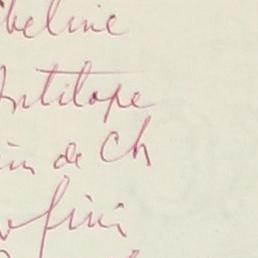 ibeline
Antilope
in de Ch
fini